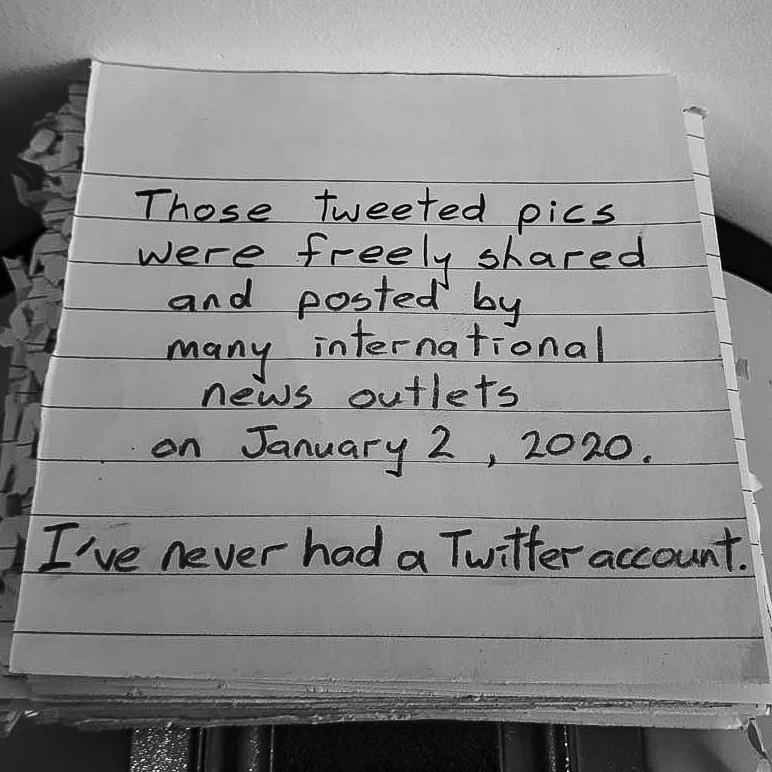 Those tweeted pics
were freely shared
and posted by
many international
news outlets
on January 2, 2020.
I've never had a Twitter account.